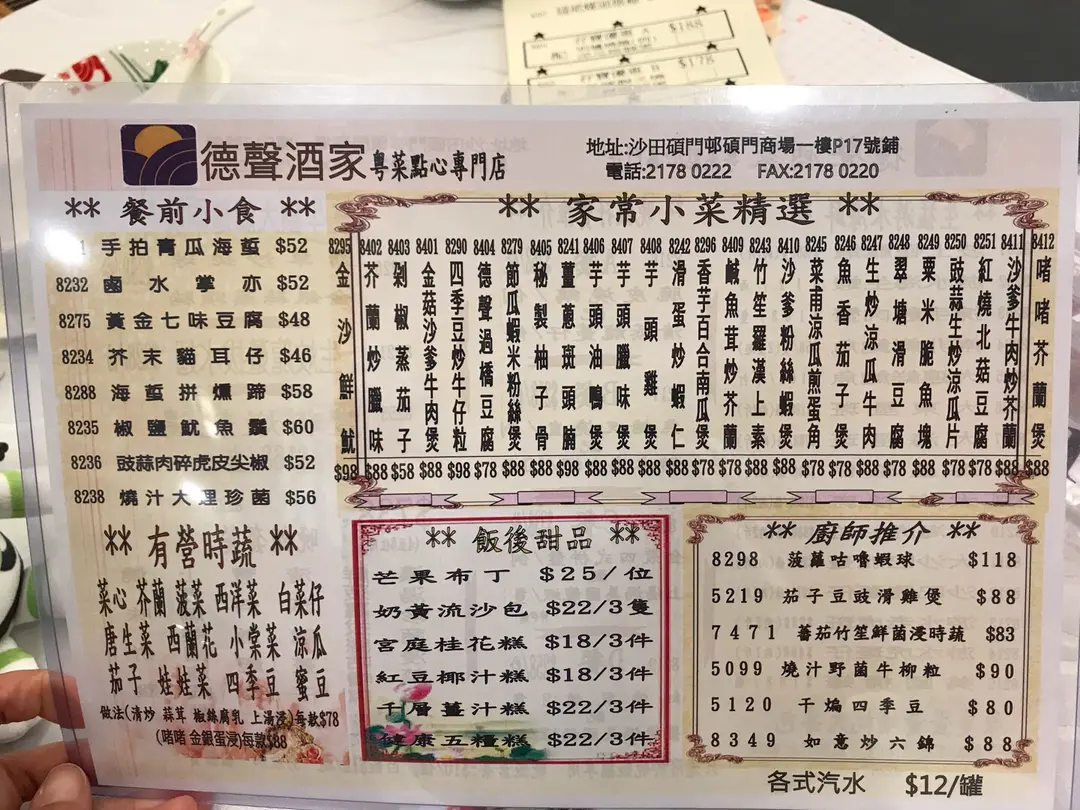 $188
$178
德聲酒家 粵菜點心專門店
地址:沙田碩門邨碩門商場一樓P17號鋪
電話:2178 0222 FAX:2178 0220
** 餐前小食 **
1 手拍青瓜海蜇 $52
8232 鹵水掌亦 $52
8275 黃金七味豆腐 $48
8234 芥末貓耳仔 $46
8288 海蜇拼燻蹄 $58
8235 椒鹽魷魚鬚 $60
8236 豉蒜肉碎虎皮尖椒 $52
8238 燒汁大理珍菌 $56
** 家常小菜精選 **
8295 金沙鮮魷 $98
8402 芥蘭炒臘味 $88
8403 剁椒蒸茄子 $58
8401 金菇沙爹牛肉煲 $88
8290 四季豆炒牛仔粒 $98
8404 德聲過橋豆腐 $78
8279 節瓜蝦米粉絲煲 $88
8405 秘製柚子骨 $88
8241 薑蔥斑頭腩 $98
8406 芋頭油鴨煲 $88
8407 芋頭臘味煲 $88
8408 芋頭雞煲 $88
8242 滑蛋炒蝦仁 $88
8296 香芋百合南瓜煲 $78
8409 鹹魚茸炒芥蘭 $78
8243 竹笙羅漢上素 $88
8410 沙爹粉絲蝦煲 $88
8245 菜甫涼瓜煎蛋角 $78
8246 魚香茄子煲 $78
8247 生炒涼瓜牛肉 $88
8248 翠塘滑豆腐 $88
8249 粟米脆魚塊 $88
8250 豉蒜生炒涼瓜片 $78
8251 紅燒北菇豆腐 $78
8411 沙爹牛肉炒芥蘭 $88
8412 啫啫芥蘭煲 $88
** 有營時蔬 **
菜心 芥蘭 菠菜 西洋菜 白菜仔
唐生菜 西蘭花 小棠菜 涼瓜
茄子 娃娃菜 四季豆 蜜豆
做法(清炒 蒜茸 椒絲腐乳 上湯浸)每款$78
(啫啫 金銀蛋浸)每款$88
** 飯後甜品 **
芒果布丁 $25/位
奶黃流沙包 $22/3隻
宮庭桂花糕 $18/3件
紅豆椰汁糕 $18/3件
千層薑汁糕 $22/3件
健康五糧糕 $22/3件
** 廚師推介 **
8298 菠蘿咕嚕蝦球 $118
5219 茄子豆豉滑雞煲 $88
7471 蕃茄竹笙鮮菌浸時蔬 $83
5099 燒汁野菌牛柳粒 $90
5120 干煸四季豆 $80
8349 如意炒六錦 $88
各式汽水 $12/罐